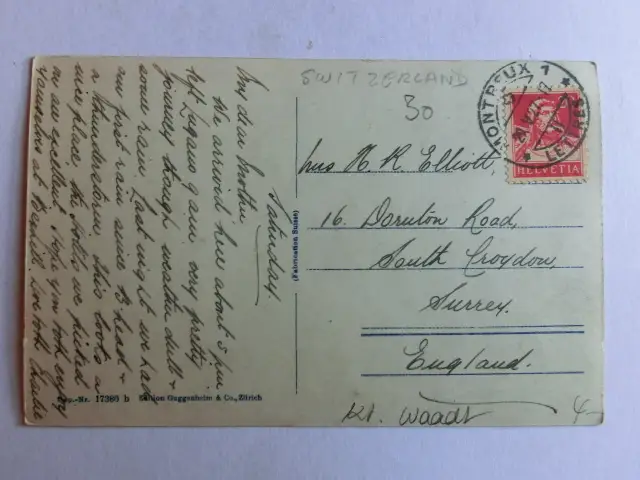 SWITZERLAND
30
MONTREUX 1
LETTRES
HELVETIA
Mrs H. R. Elliott,
16. Dornton Road,
South Croydon,
Surrey.
England.
Kt. Waadt
4-
(Fabrication Suisse)
Saturday.
My dear Mother
We arrived here about 5 pm
left Lugano 9 am very pretty
journey though weather dull &
some rain. Last night we had
our first rain since B'head &
a thunderstorm. This looks a
nice place, the Hotel we picked
on an excellent. Hope you both enjoy
yourselves at Bexhill
17380 b Edition Guggenheim & Co., Zürich